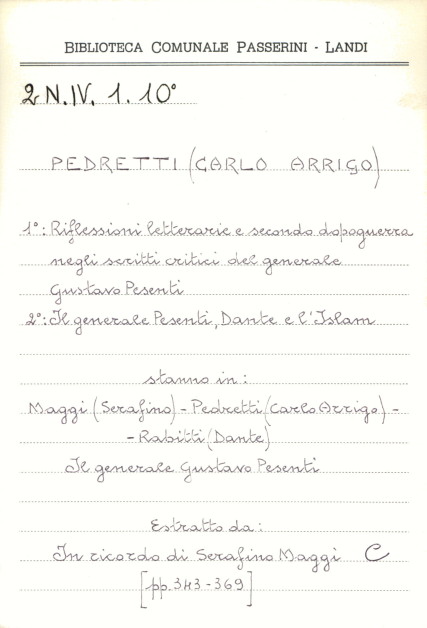 BIBLIOTECA COMUNALE PASSERINI - LANDI
2 N.IV. 1. 10°
PEDRETTI (CARLO ARRIGO)
1°: Riflessioni letterarie e secondo dopoguerra
negli scritti critici del generale
Gustavo Pesenti
2°: Il generale Pesenti, Dante e l'Islam
stanno in:
Maggi (Serafino) - Pedretti (Carlo Arrigo) -
- Rabitti (Dante)
Il generale Gustavo Pesenti
Estratto da:
In ricordo di Serafino Maggi C
[pp. 343 - 369]